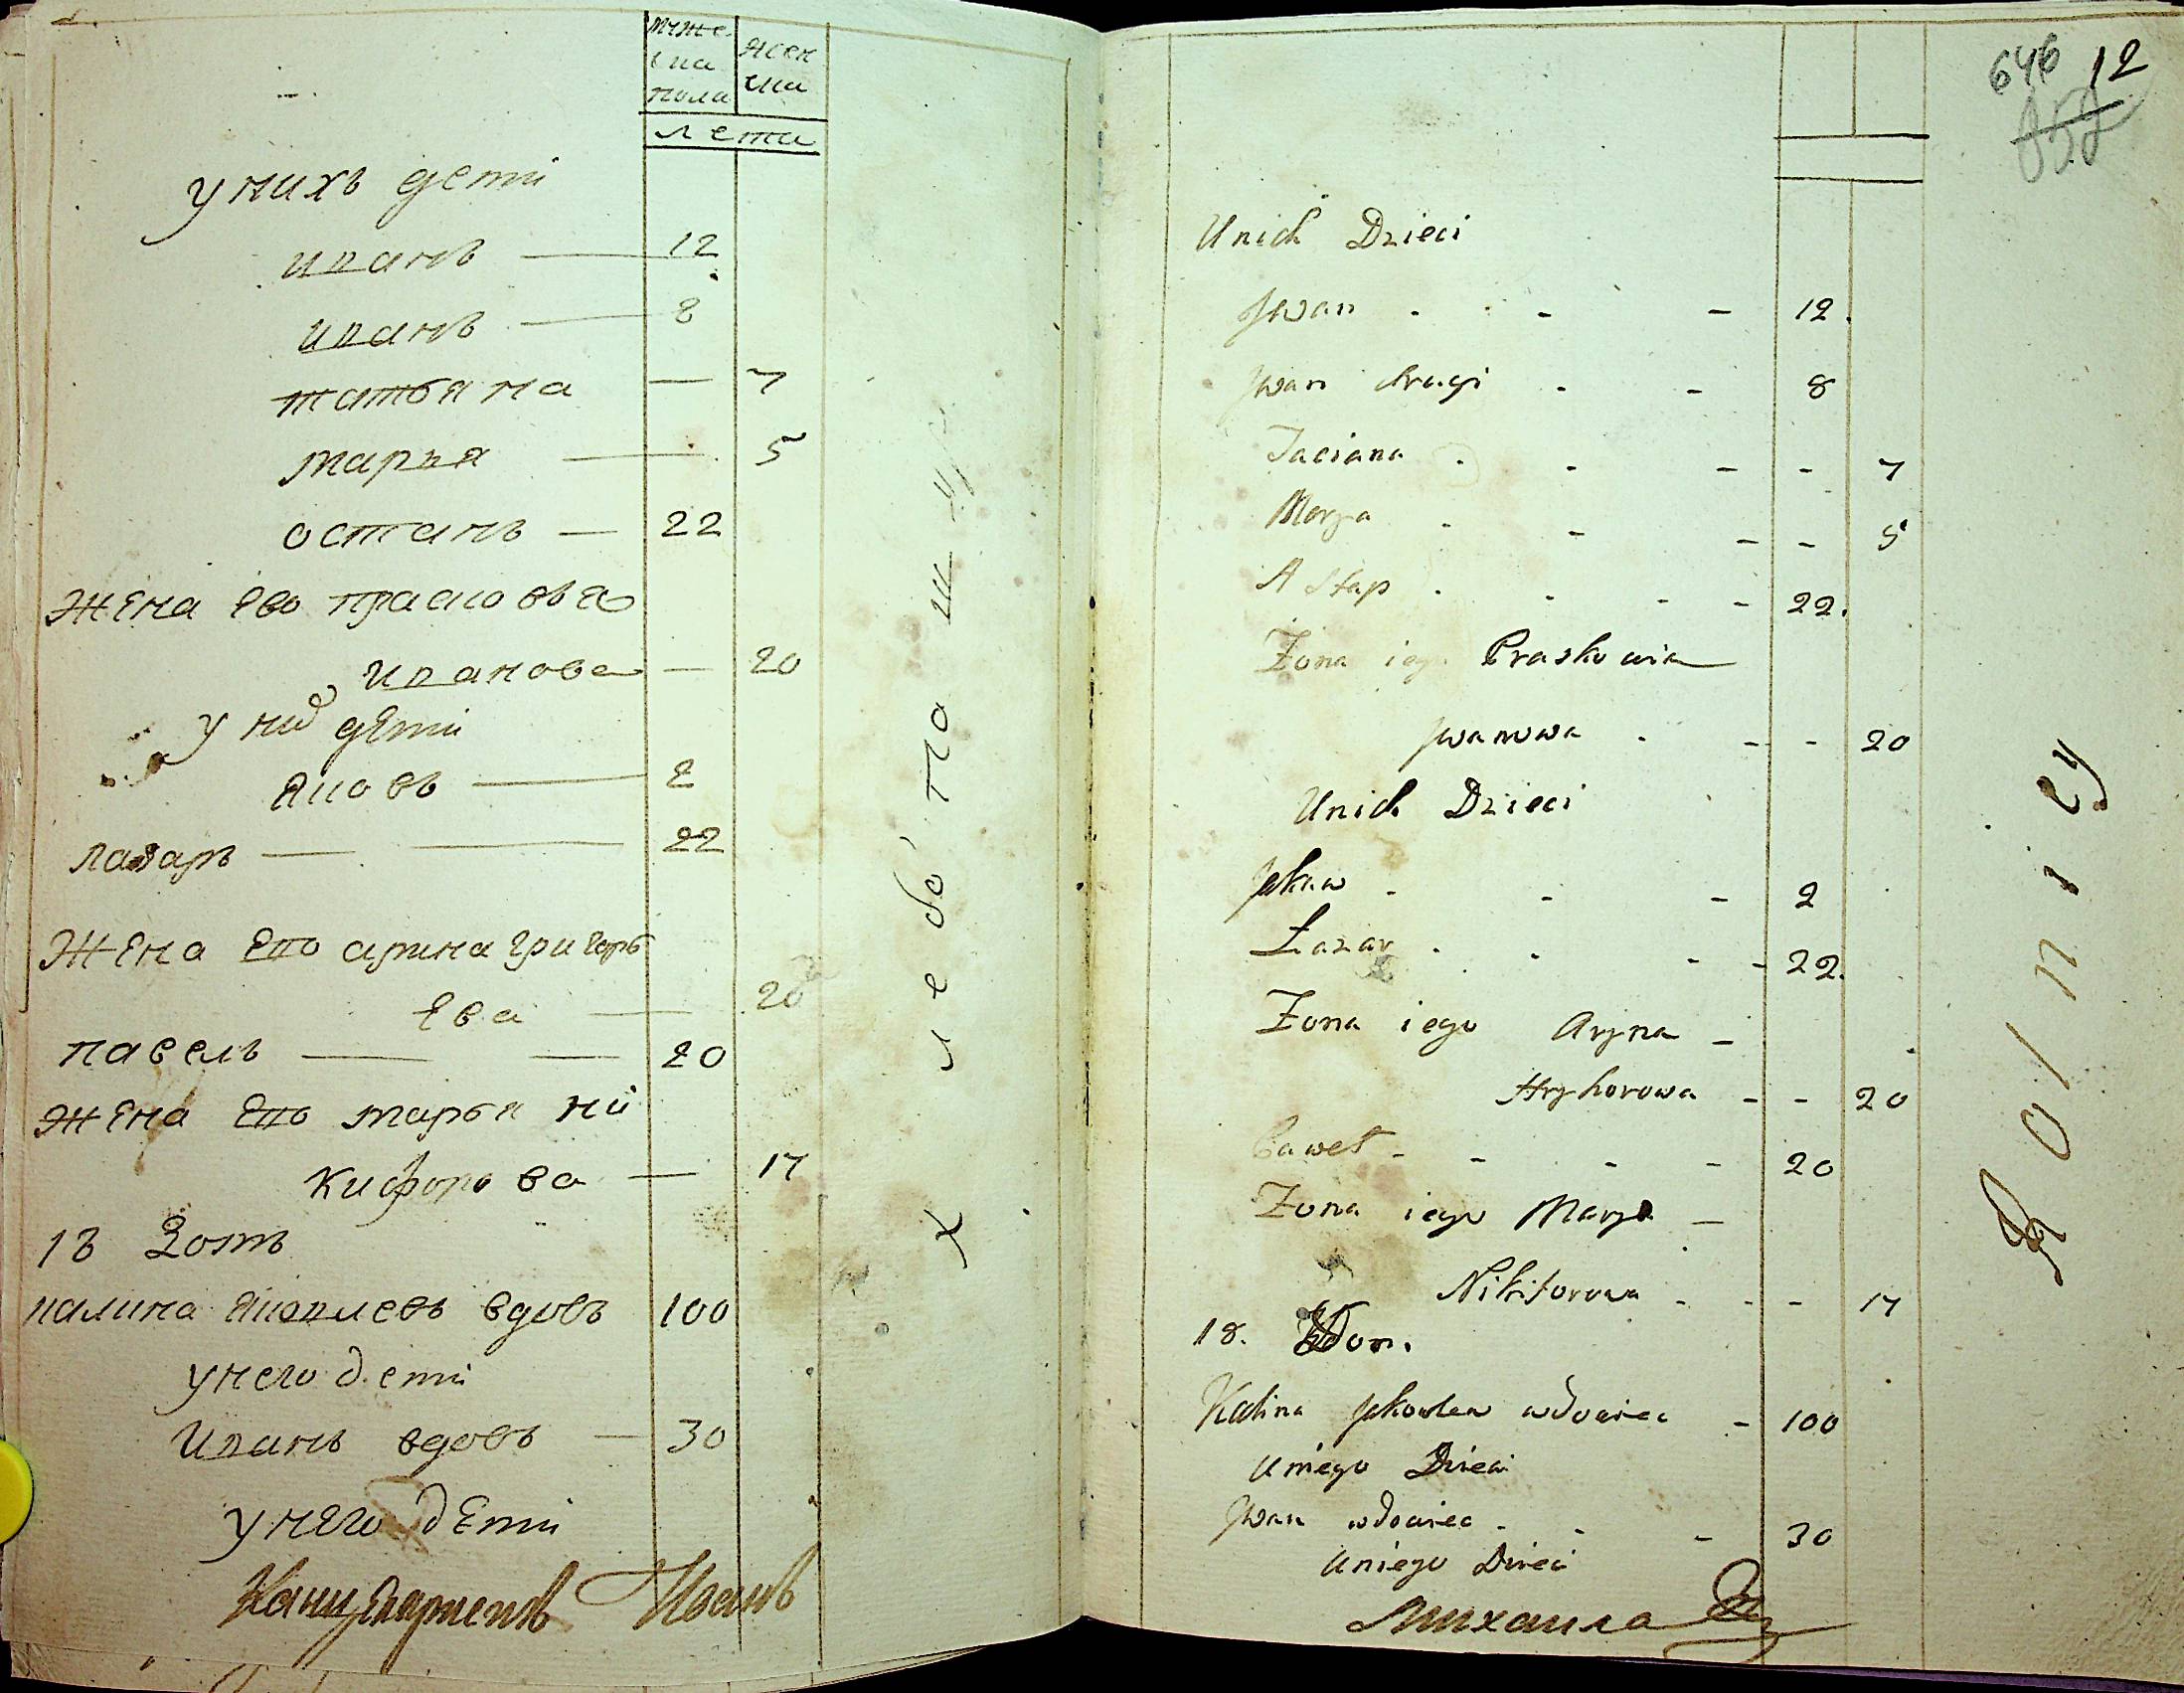 муже
ска
пола
женс
ска
лета
у нихъ дети
иванъ — 12
иванъ — 8
татьяна — 7
марья — 5
остапъ — 22
жена ево прасковья
иванова — 20
у них дети
яковъ — 2
лазарь — 22
жена ево арина григорь
ева — 20
павелъ — 20
жена ево марья ни
кифорова — 17
18 Домъ
калина яковлевъ вдовъ 100
у него дети
иванъ вдовъ — 30
у него дети
Иванъ
хлебопаш
646 12
Unich Dzieci
Jwan - - 12.
Jwan drugi - - 8
Taciana - - - - 7
Marya - - - - 5
Astap - - - 22.
Żona iego Praskowia
Jwanowa - - - 20
Unich Dzieci
Jakow - - - 2
Łazar - - - 22.
Żona iego Aryna -
Hryhorowa - - 20
Paweł - - - - 20
Żona iego Marya -
Nikiforowa - - - 17
18. Dom.
Kalina Jakowlew wdowiec - 100
Uniego Dzieci
Jwan wdowiec - - - 30
Uniego Dzieci
Михаила
Rolnicy